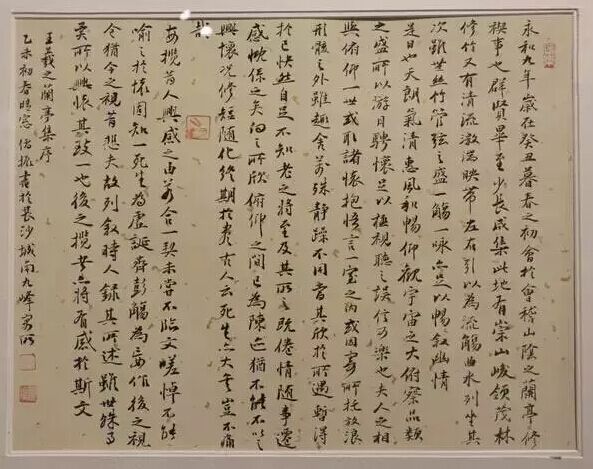 永和九年歲在癸丑暮春之初會於會稽山陰之蘭亭修
禊事也群賢畢至少長咸集此地有崇山峻領茂林
修竹又有清流激湍映帶左右引以為流觴曲水列坐其
次雖無絲竹管弦之盛一觴一詠亦足以暢叙幽情
是日也天朗氣清惠風和暢仰觀宇宙之大俯察品類
之盛所以游目騁懷足以極視聽之娛信可樂也夫人之相
與俯仰一世或取諸懷抱悟言一室之內或因寄所托放浪
形骸之外雖趣舍萬殊靜躁不同當其欣於所遇暫得
於己快然自足不知老之將至及其所之既倦情隨事遷
感慨係之矣向之所欣俯仰之間已為陳迹猶不能不以之
興懷況修短隨化終期於盡古人云死生亦大矣豈不痛
哉
每攬昔人興感之由若合一契未嘗不臨文嗟悼不能
喻之於懷固知一死生為虛誕齊彭殤為妄作後之視
今猶今之視昔悲夫故列叙時人錄其所述雖世殊事
異所以興懷其致一也後之攬者亦將有感於斯文
王羲之蘭亭集序
乙未初春晴窗書於長沙城南九峰寓所